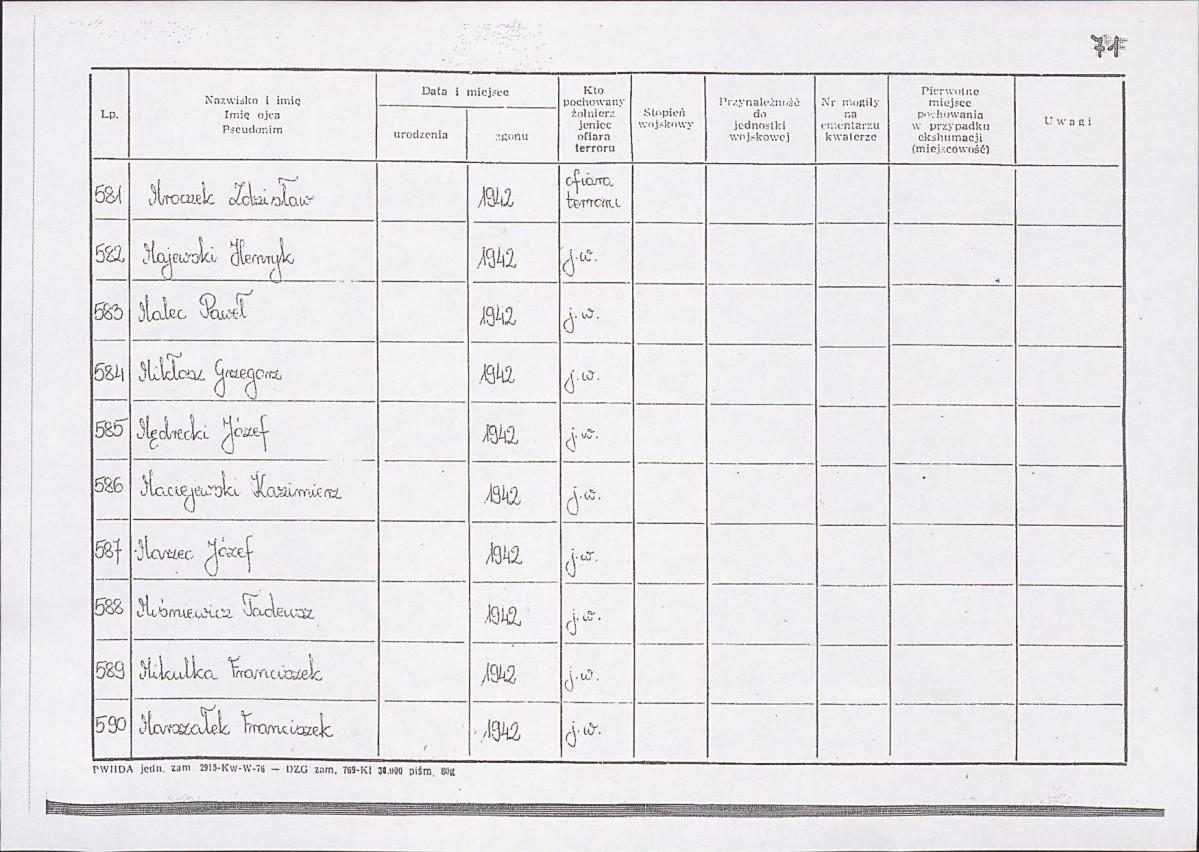 71
Lp.
Nazwisko i imię
Imię ojca
Pseudonim
Data i miejsce
urodzenia
zgonu
Kto
pochowany
żołnierz
jeniec
ofiara
terroru
Stopień
wojskowy
Przynależność
do
jednostki
wojskowej
Nr mogiły
na
cmentarzu
kwaterze
Pierwotne
miejsce
pochowania
w przypadku
ekshumacji
(miejscowość)
Uwagi
581 Mroczek Zdzisław 1942 ofiara
terroru
582 Majewski Henryk 1942 j.w.
583 Malec Paweł 1942 j.w.
584 Mikłasz Grzegorz 1942 j.w.
585 Mędrecki Józef 1942 j.w.
586 Maciejewski Kazimierz 1942 j.w.
587 Marzec Józef 1942 j.w.
588 Miśniewicz Tadeusz 1942 j.w.
589 Mikulka Franciszek 1942 j.w.
590 Marszałek Franciszek 1942 j.w.
PWIIDA jedn. zam 2915-Kw-W-76 — DZG zam. 769-Kl 30.000 piśm. 80g